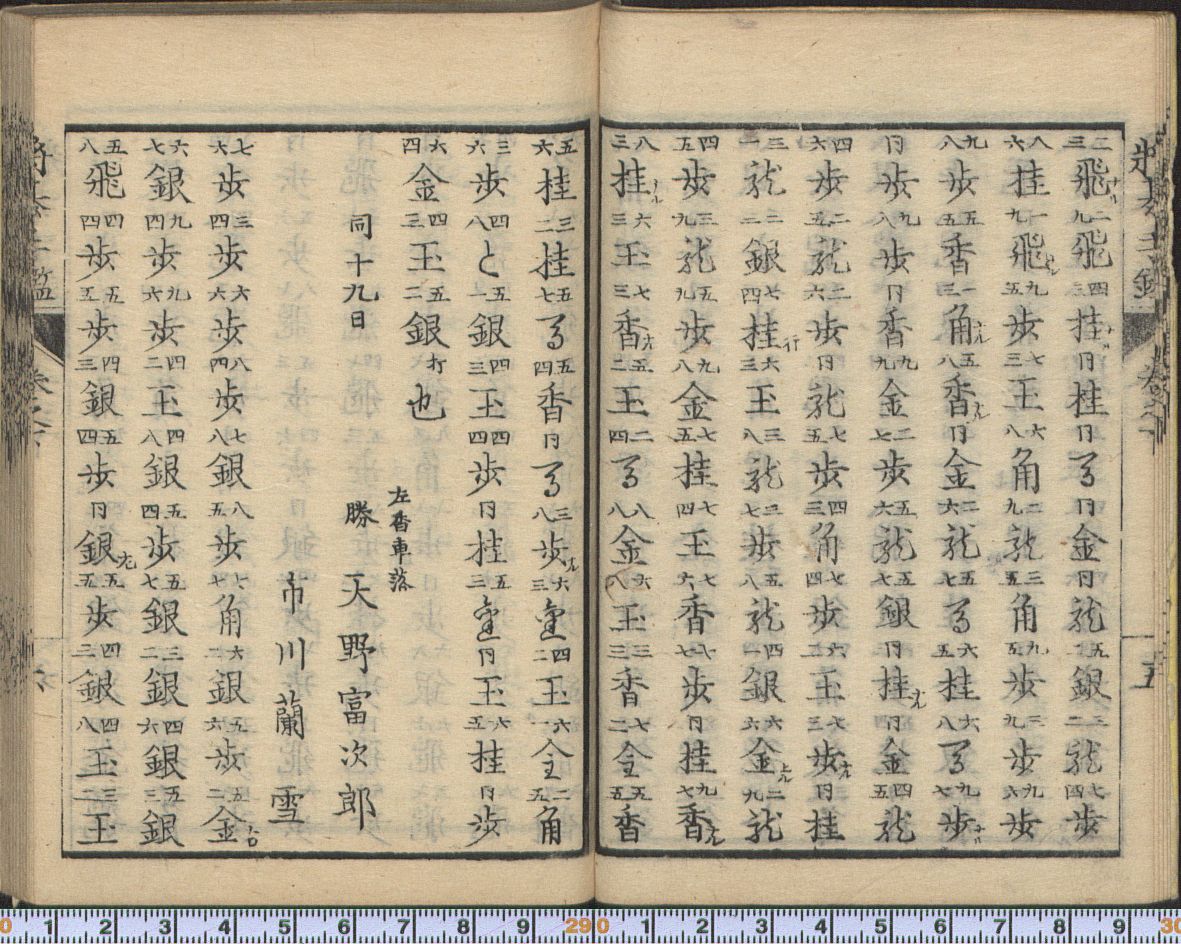 将棋手鑑 巻之下 五
二三飛ナル二九飛四二桂ナル同桂同馬同金同龍五二銀三二龍七四歩
八六桂一九飛ナル九五歩七三王六八角二九龍三五角九五歩三九歩九六歩
九八歩五五香一三角ナル五八香ナル同金二六龍五七馬六五桂六八馬九七歩ナル
同歩九八歩同香九九金二七歩五六龍五七銀同桂ナル同金四五龍
四六歩二五龍二六歩同龍七五歩四三角七四歩六二王七三歩ナル同桂
三一龍二二銀七四桂行六三王三八龍二七歩五八龍四四銀六六金上ル二九龍
四五歩三九龍五九歩九八金七五桂七四王七六香八七歩同桂九七香ナル
八三桂ナル六三王七三香ナル五二王二四馬八八金六八玉三三香七二全五五香
五六桂三二桂五七馬五四香同馬三八歩ナル六三全四二玉六一全二五角
三六歩四八と五一銀四三玉四四歩同桂五三全同玉六五桂同歩
六四金四三玉五二銀打也
同十九日
左香車落
勝 天野富次郎
市川蘭雪
七六歩三四歩六六歩八四歩七八銀八五歩七七角六二銀五六歩五二金右
六七銀九四歩九六歩四二玉四八銀五四歩五七銀三二銀四六銀五三銀
五八飛四四歩五五歩四三銀五四歩同銀左五五歩四三銀四八玉三二玉